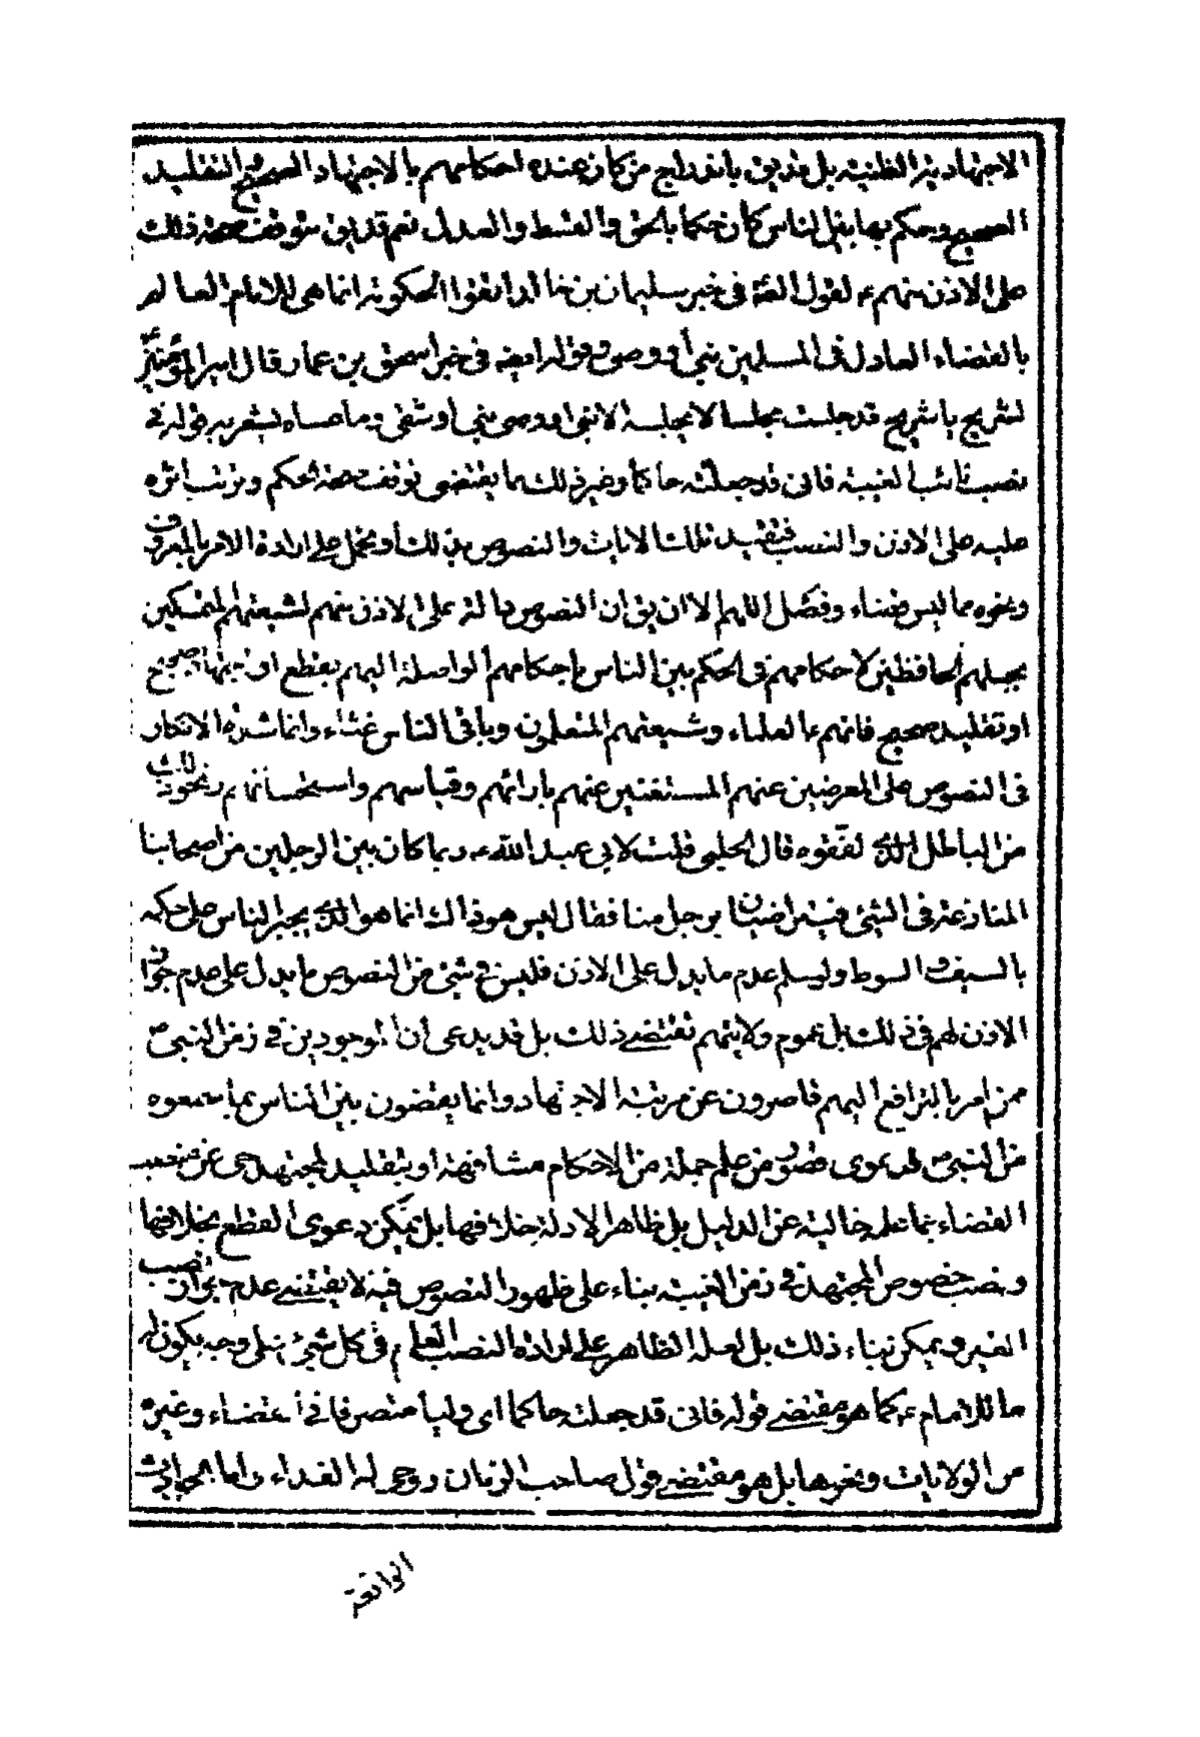 الاجتهادية الظنية بل قد يق باندراج من كان عنده احكامهم بالاجتهاد الصحيح او التقليد
الصحيح وحكم بها بين الناس كان حكما بالحق والقسط والعدل نعم قد يق بتوقف صحة ذلك
على الاذن منهم ع لقول الصّ في خبر سليمان بن خالد اتقوا الحكومة انما هي للامام العالم
بالقضاء العادل في المسلمين نبي أو وصي وقوله ايضا في خبر اسحق بن عمار قال امير المؤمنين
لشريح يا شريح قد جلست مجلسا لا يجلسه الا نبي او وصي نبي او شقي و ما عساه يشعر به قوله في
نصب نائب الغيبة فاني قد جعلته حاكما وغير ذلك مما يقتضي توقف صحة الحكم وترتب اثره
عليه على الاذن والنصب فتقيد تلك الايات والنصوص بذلك أو تحمل على ارادة الامر بالمعروف
ونحوه مما ليس قضاء وفصل اللهم الا ان يق ان النصوص دالة على الاذن منهم لشيعتهم المتمسكين
بحبلهم الحافظين لاحكامهم في الحكم بين الناس باحكامهم الواصلة اليهم بقطع او اجتهاد صحيح
او تقليد صحيح فانهم ع العلماء وشيعتهم المتعلمون وباقي الناس غثاء وانما شدة الانكار
في النصوص على المعرضين عنهم المستغنين عنهم بارائهم وقياسهم واستحساناتهم ونحو ذلك
من الباطل الذي لفقوه قال الحلبي قلت لابي عبد الله ع ربما كان بين الرجلين من اصحابنا
المنازعة في الشيئ فيتراضيان برجل منا فقال ليس هو ذاك انما هو الذي يجبر الناس على حكمه
بالسيف والسوط ولو سلم عدم ما يدل على الاذن فليس في شيئ من النصوص ما يدل على عدم جواز
الاذن لهم في ذلك بل عموم ولايتهم تقتضي ذلك بل قد يدعى أن الموجودين في زمن النبي ص
ممن امر بالترافع اليهم قاصرون عن مرتبة الاجتهاد وانما يقضون بين الناس بما سمعوه
من النبي ص فدعوى قصور من علم جملة من الاحكام مشافهة او بتقليد لمجتهد حي عن منصب
القضاء بما علمه خالية عن الدليل بل ظاهر الادلة خلافها بل يمكن دعوى القطع بخلافها
ونصب خصوص المجتهد في زمن الغيبة بناء على ظهور النصوص فيه لا يقتضي عدم جواز نصب
الغير ويمكن بناء ذلك بل لعله الظاهر على ارادة النصب العام في كل شيئ على وجه يكون له
ما للامام ع كما هو مقتضى قوله فاني قد جعلته حاكما اى وليا متصرفا في القضاء وغيره
من الولايات ونحوها بل هو مقتضى قول صاحب الزمان روحي له الفداء واما الحوادث
الواقعة